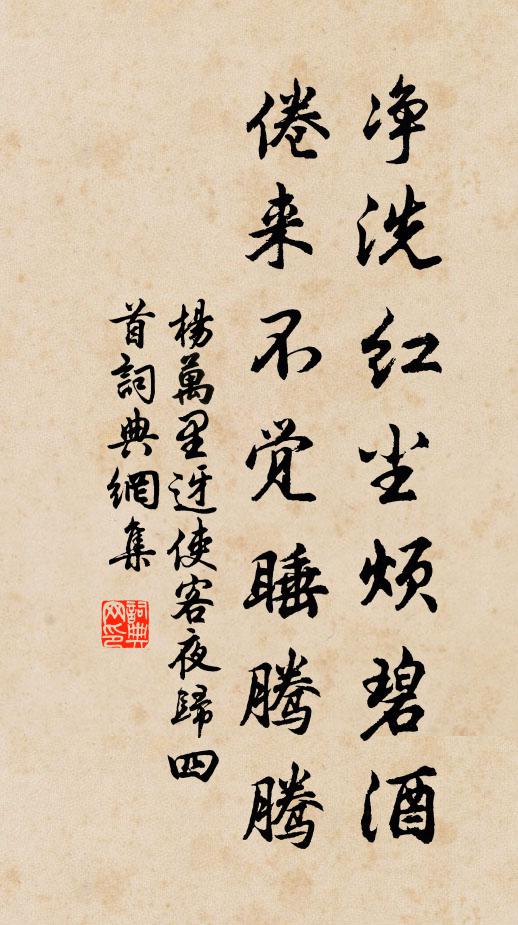 净洗红尘烦碧酒
倦来不觉睡腾腾
楊萬里迓使客夜歸四
首詞典網集
詞典
网印